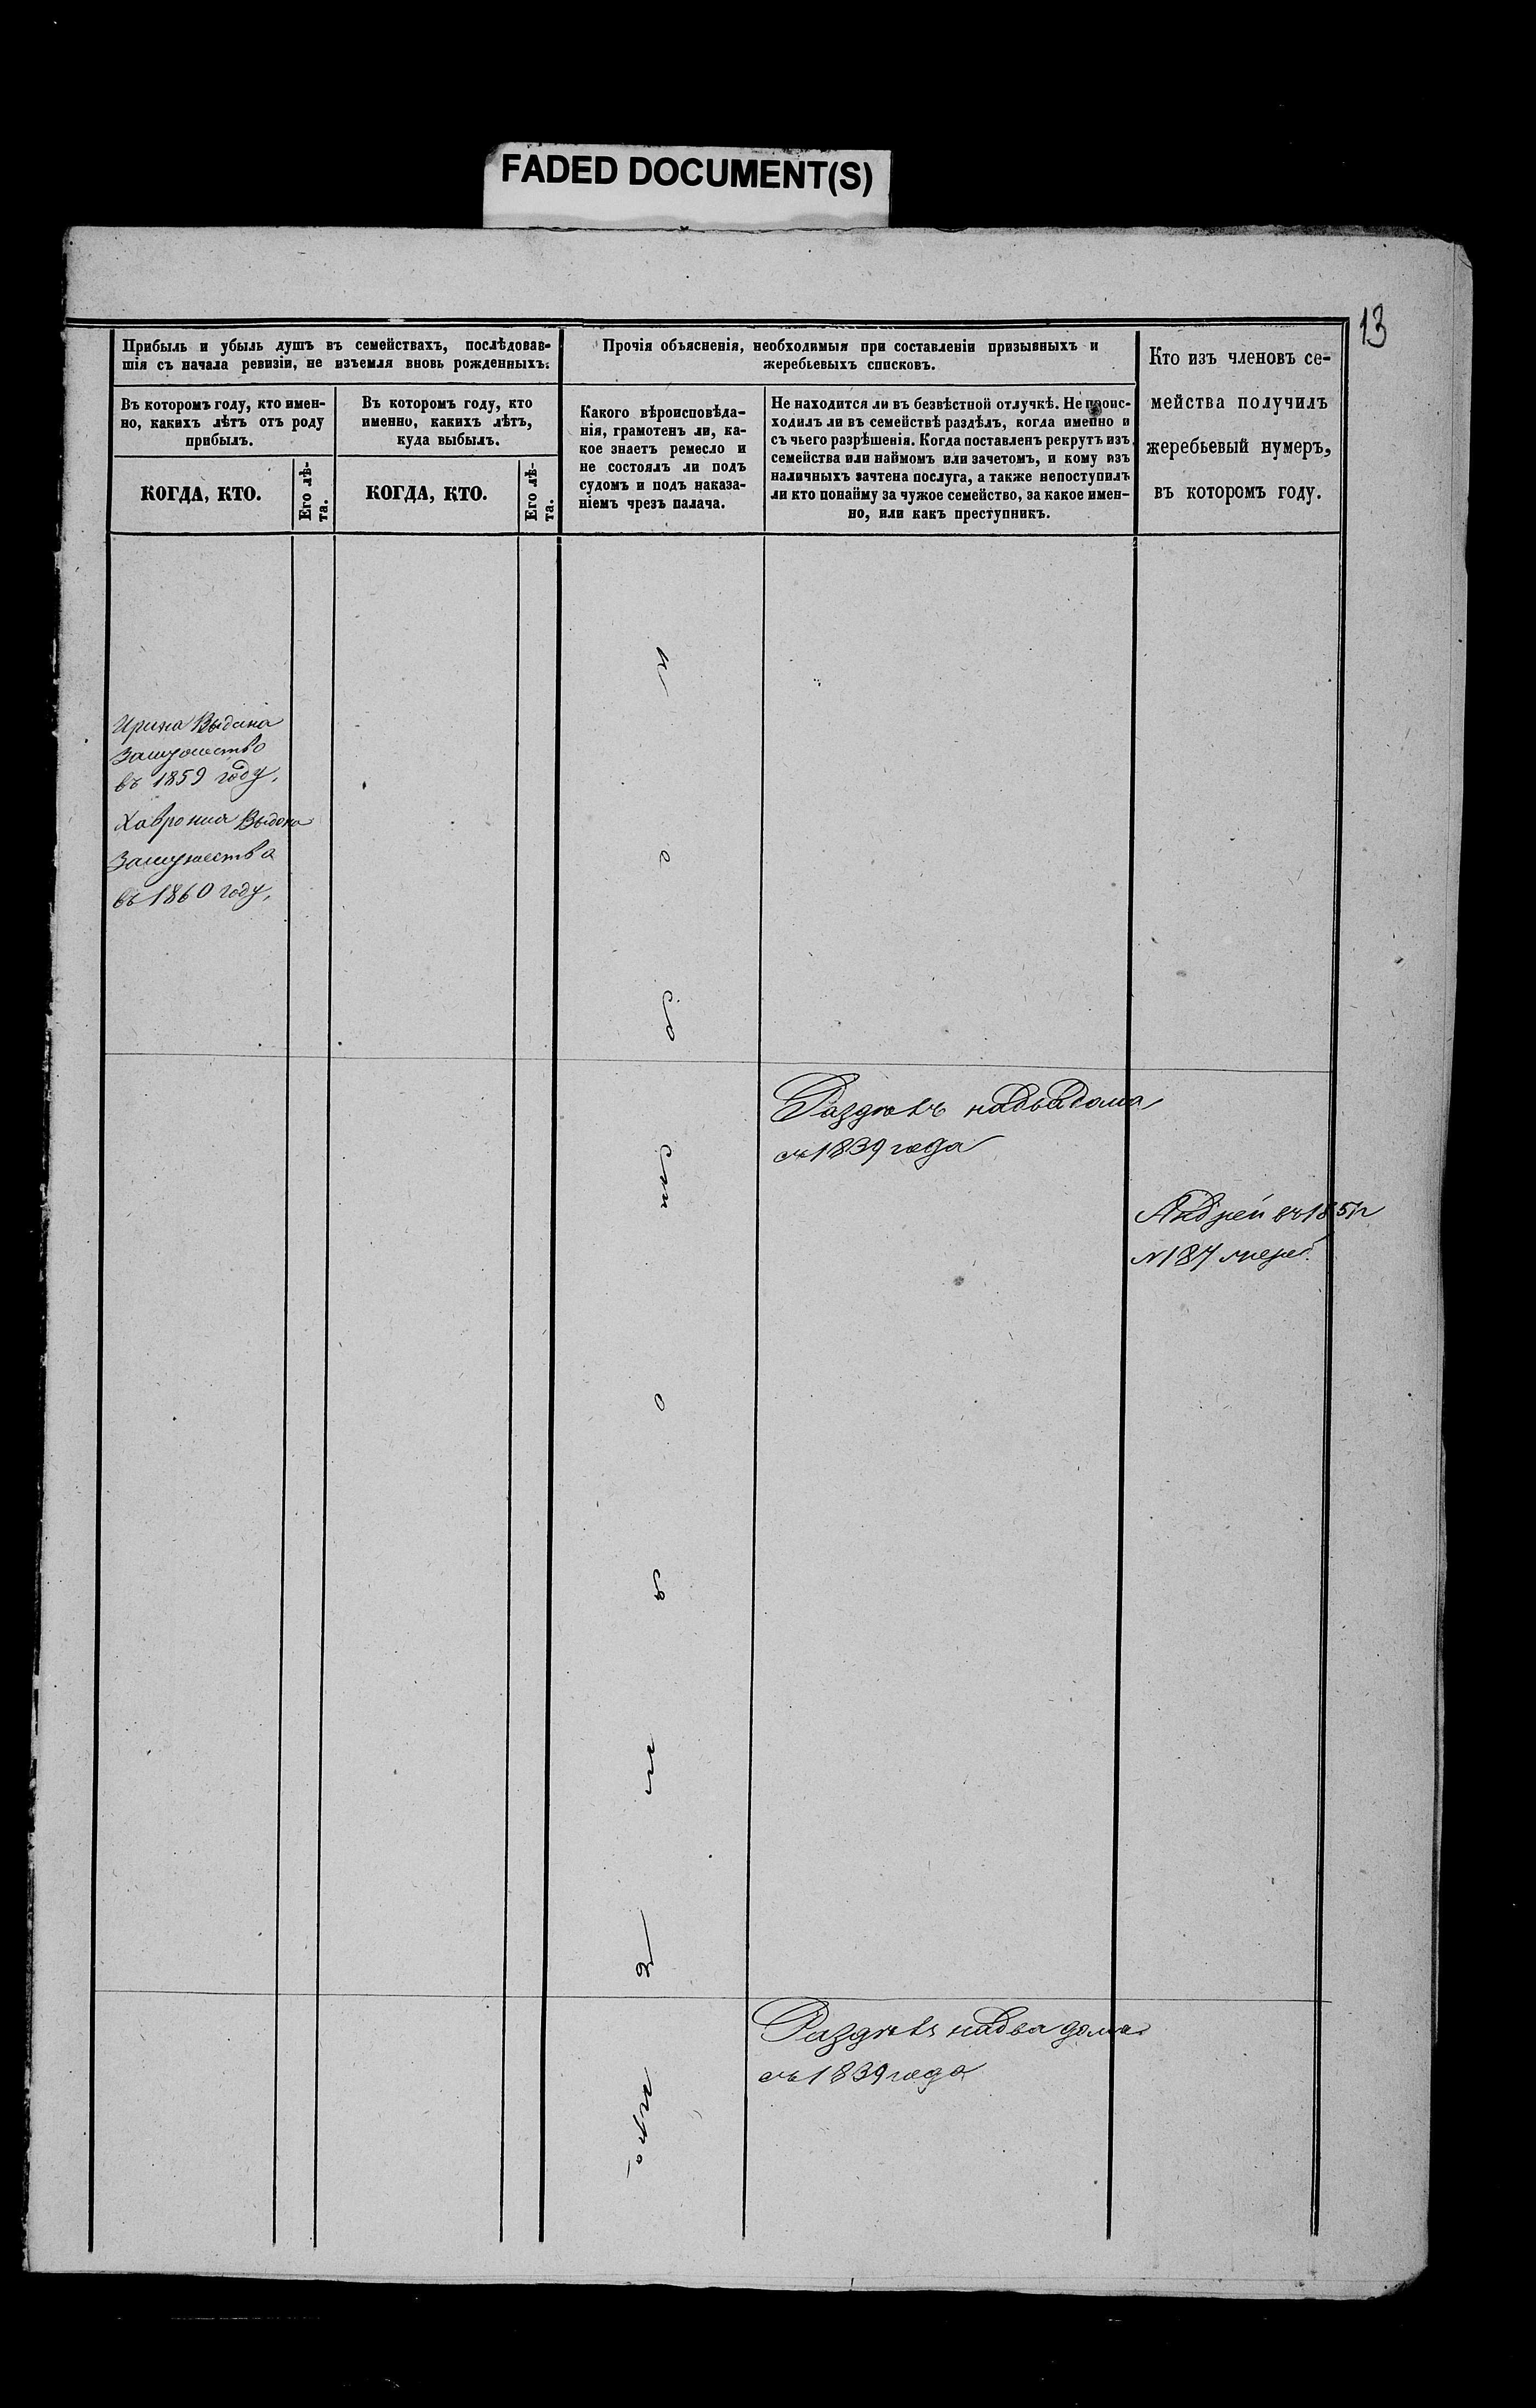 FADED DOCUMENT(S)
13
Прибыль и убыль душъ въ семействахъ, послѣдовав-
шія съ начала ревизіи, не изъемля вновь рожденныхъ.
Въ которомъ году, кто имен-
но, какихъ лѣтъ отъ роду
прибылъ.
КОГДА, КТО.
Его лѣ-
та.
Въ которомъ году, кто
именно, какихъ лѣтъ,
куда выбылъ.
КОГДА, КТО.
Его лѣ-
та.
Прочія объясненія, необходимыя при составленіи призывныхъ и
жеребьевыхъ списковъ.
Какого вѣроисповѣда-
нія, грамотенъ ли, ка-
кое знаетъ ремесло и
не состоялъ ли подъ
судомъ и подъ наказа-
ніемъ чрезъ палача.
Не находится ли въ безвѣстной отлучкѣ. Не проис-
ходилъ ли въ семействѣ раздѣлъ, когда именно и
съ чьего разрѣшенія. Когда поставленъ рекрутъ изъ
семейства или наймомъ или зачетомъ, и кому изъ
наличныхъ зачтена послуга, а также непоступилъ
ли кто понайму за чужое семейство, за какое имен-
но, или какъ преступникъ.
Кто изъ членовъ се-
мейства получилъ
жеребьевый нумеръ,
въ которомъ году.
Ирина Выдана
Замужество
въ 1859 году,
Хаврония Выдана
Замужество
въ 1860 году,
Раздѣлъ надва дома
съ 1839 года
Андрей въ 185
N 187
Раздѣлъ надва дома
съ 1839 года